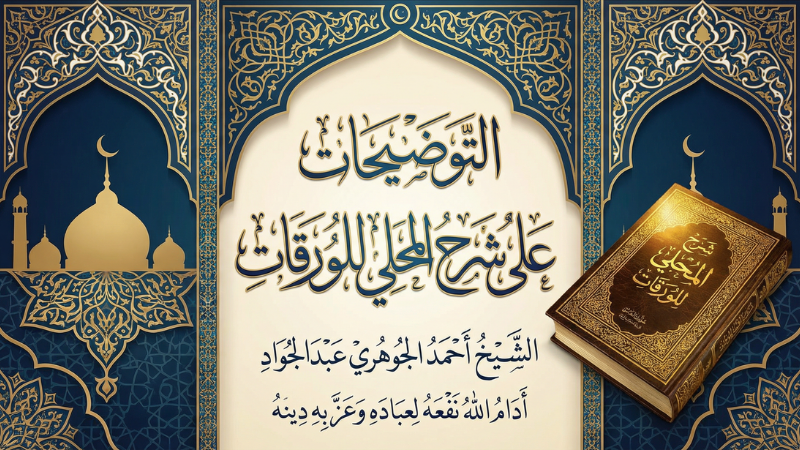 التَّوضِيحَات
عَلَى شَرحُ المَحَلي للوُرَقَاتِ
الشَّيْخُ أَحْمَدُ الجُوهُري عَبْدَالجُوَادِ
أَدَامُ اللهُ نَفْعَهُ لِعِبَادَهِ وَعَزَّ بِهِ دِينَهُ
شرح
المحلي
للورقات